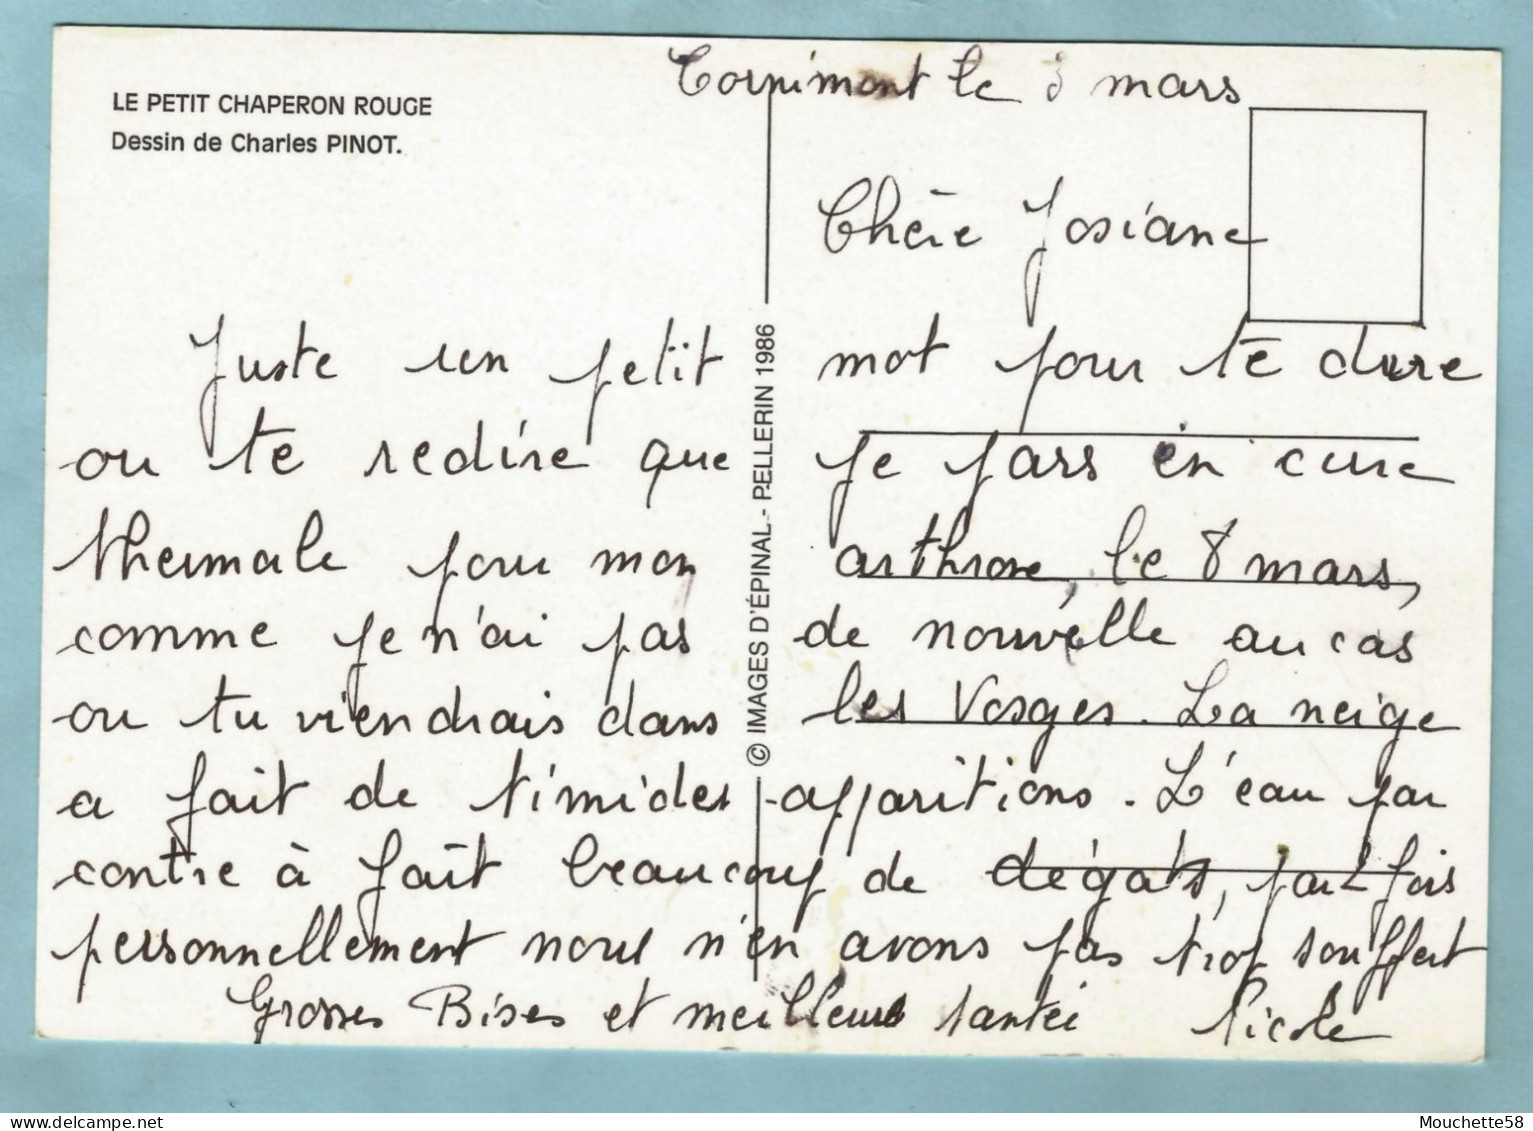 LE PETIT CHAPERON ROUGE
Dessin de Charles PINOT.
Cornimont le 3 mars
Chère Josiane
Juste un petit mot pour te dire
ou te redire que je pars en cure
thermale pour mon arthrose, le 8 mars,
comme je n'ai pas de nouvelle au cas
ou tu viendrais dans les Vosges. La neige
a fait de timides apparitions. L'eau par
contre à fait beaucoup de dégats, parfois
personnellement nous n'en avons pas trop souffert
Grosses Bises et meilleure santé Nicole
© IMAGES D'ÉPINAL - PELLERIN 1986
Mouchette58